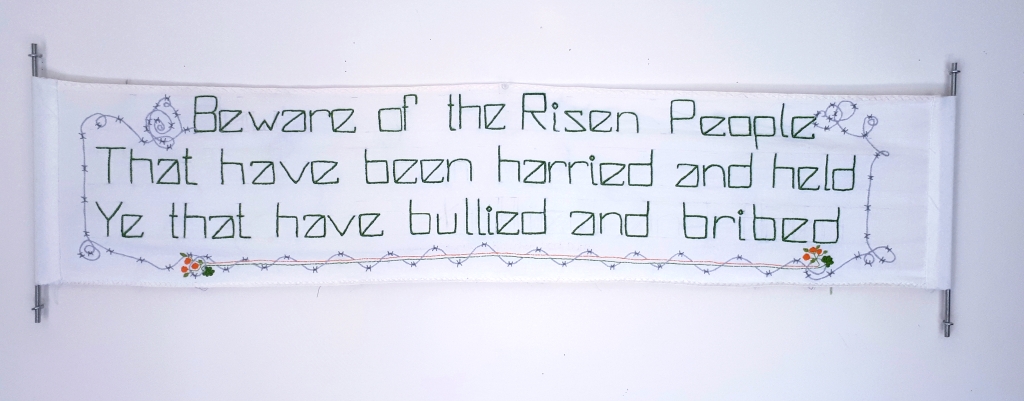 Beware of the Risen People
That have harried and held
Ye that have bullied and bribed